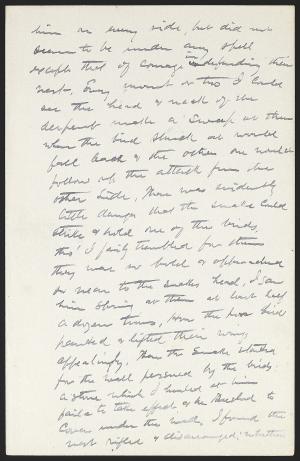 him on every side, but did not
seem to be under any spell
except that of courage in defending their
nest. Every moment or two I could
see the head & neck of the
serpent make a sweep at them
when the bird struck at would
fall back & the other one would
follow up the attack from the
other side. There was evidently
little danger that the snake could
strike & hold one of the birds,
tho' I fairly trembled for them
they were so bold & approached
so near to the snakes head. I saw
him spring at them at least half
a dozen times, How the poor bird
panted & lifted their wings
appealingly. Then the snake started
for the wall pursued by the birds:
a stone which I hurled at him
failed to take effect & he
cover under the I found the
nest rifled & disarranged; whether